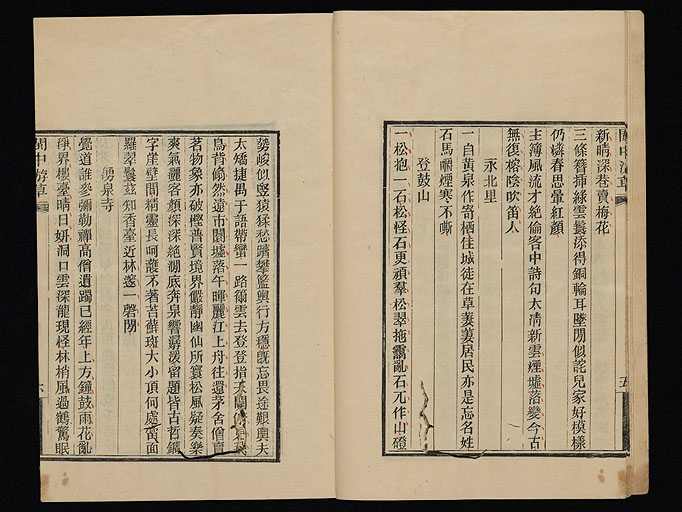 閩中游草
新晴深巷賣梅花
三條簪揷綠雲鬟添得銅輪耳墜閒似詫兒家好模樣
仍嬌春思暈紅顏
主簿風流才絶倫客中詩句太淸新雲煙墟落變今古
無復榕陰吹笛人
永北里
一自黃泉作寄栖住城徒在草萋萋居民亦是忘名姓
石馬嚼煙寒不嘶
登鼓山
一松抱一石松怪石更頑羣松翠拖靄亂石亢作山磴
五
勢峻似竪猿猱愁躋攀籃輿行方穩旣忘畏途艱輿夫
太矯捷禺于語帶蠻一路篛雲去登登指天關
鳥背翛然遠市闤墟落午暉麗江上舟往還茅舍僧
茗物象亦破慳普賢境界儼靜幽仙所寰松風疑奏樂
爽氣灑客顏深深絶澗底奔泉響潺湲留題皆古哲鐫
字崖壁間精靈長呵護不著苔蘚斑大小頂何處當面
羅翠鬟玆知香臺近林邃一磬閒
湧泉寺
覺道誰參彌勒禪高僧遺躅已經年上方鐘鼓雨花亂
淨界樓臺晴日姸洞口雲深龍現怪林梢風過鶴驚眠
閩中游草
六